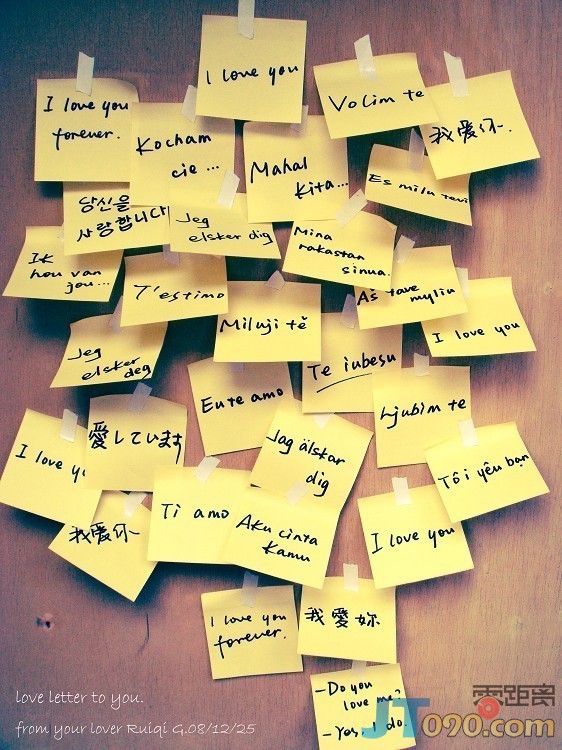 I love you
I love you
forever.
Volim te
我爱你.
Kocham
cie ...
Mahal
kita...
Es milu tevi
당신을
사랑합니다
Jeg
elsker dig
Mina
rakastan
sinua.
Ik
hou van
jou...
T'estimo
Miluji tě
Aš tave
myliu
I love you
Jeg
elsker deg
Te iubesu
Eu te amo
Ljubim te
愛しています
I love y
Jag älskar
dig
Tôi yêu bạn
Ti amo
Aku cinta
kamu
I love you
我爱你
I love you
forever.
我愛妳
-Do you
love me?
-Yes, I do.
love letter to you.
from your lover Ruiqi G.08/12/25
零距离
JT090.com